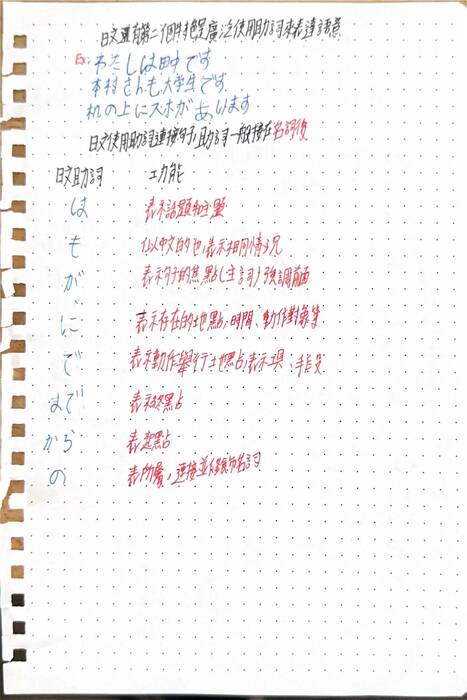 日文還有第二個特色是廣泛使用助詞來表達語意
Ex: わたしは田中です
本村さんも大学生です
机の上にスホがあいます
日文使用助詞連接句子,助詞一般接在名詞後
日文助詞 功能
は 表示話題和主題
も 似中文的也,表示相同情況
が 表示句子的焦點(主詞)強調前面
に 表示存在的地點,時間、動作對象等
で 表示動作舉行土地點,表示工具、手段
まで 表示終點
から 表起點
の 表所屬,連接並修飾名詞